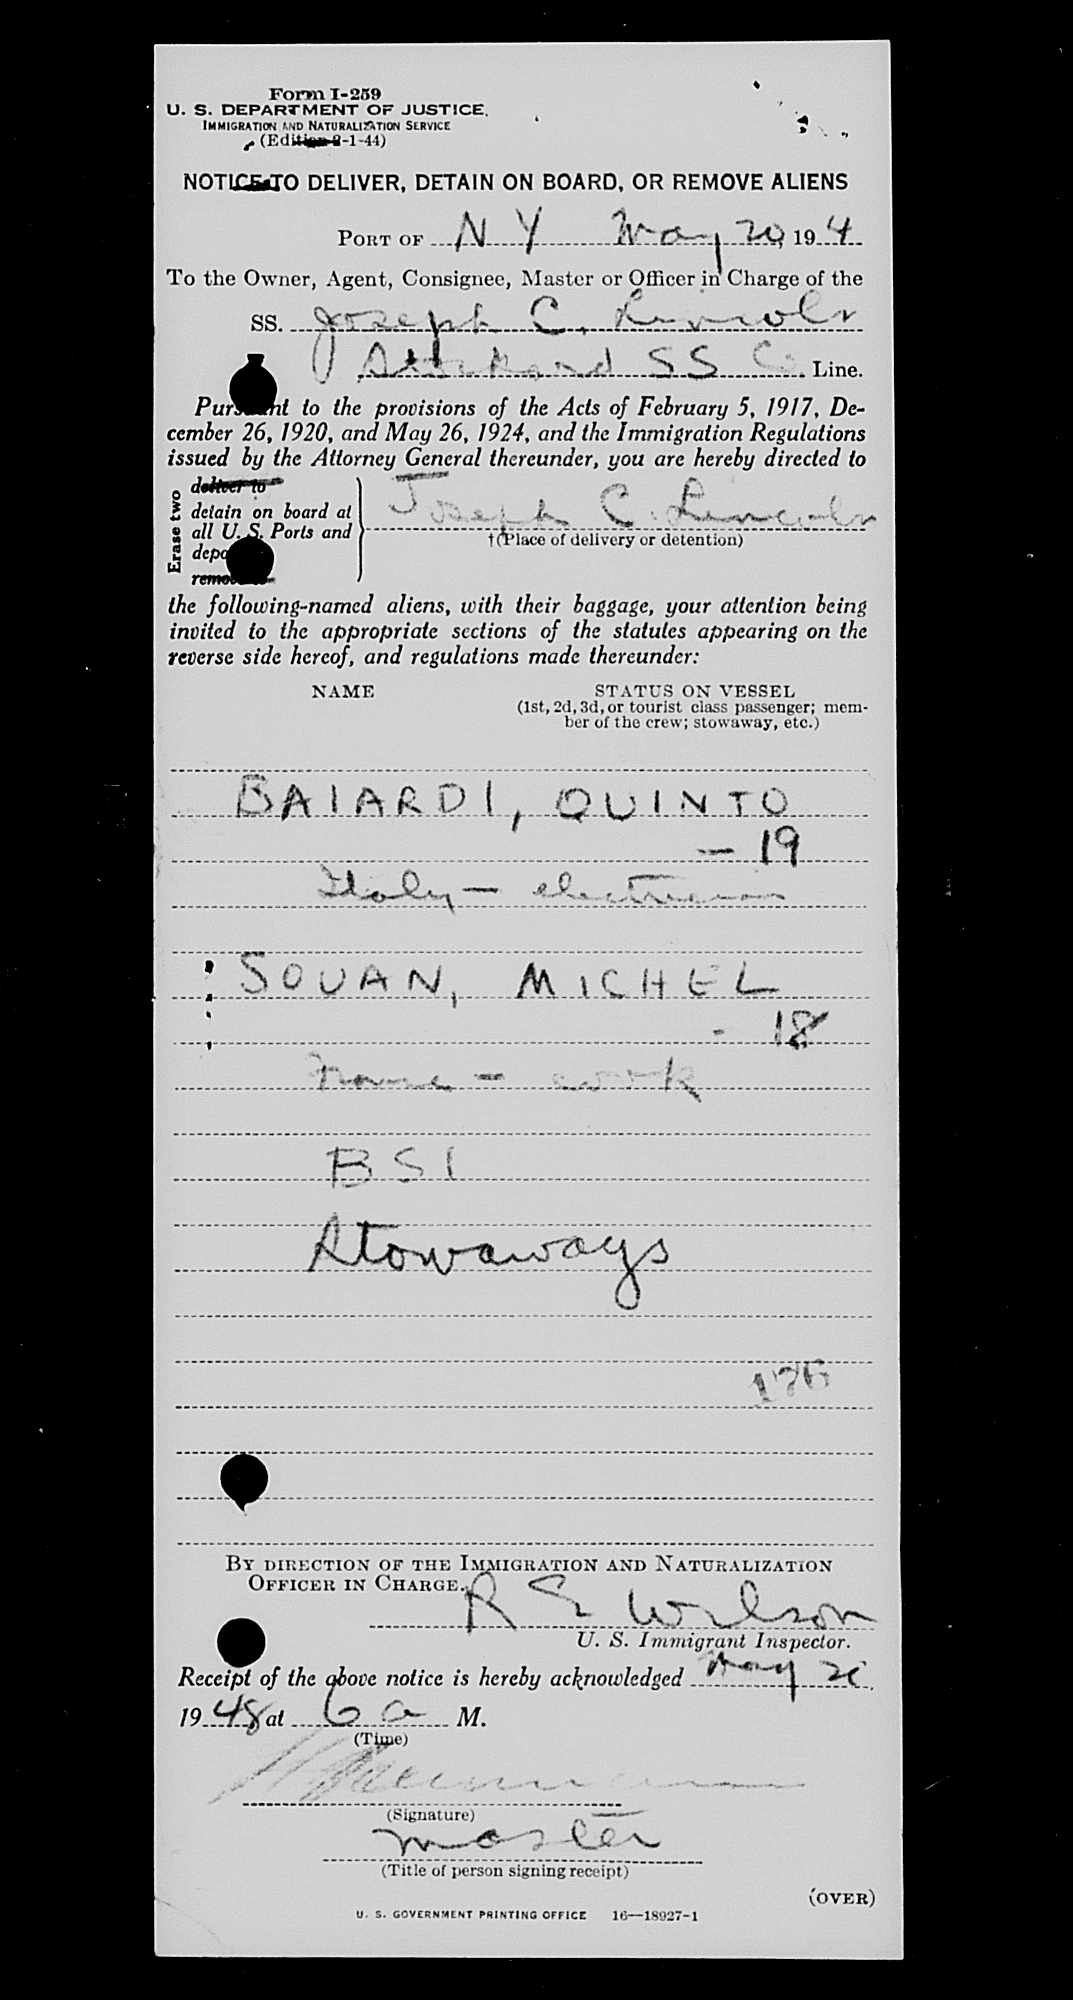 Form I-259
U. S. DEPARTMENT OF JUSTICE
IMMIGRATION AND NATURALIZATION SERVICE
(Edition 2-1-44)
NOTICE TO DELIVER, DETAIN ON BOARD, OR REMOVE ALIENS
PORT OF N Y May 20, 194
To the Owner, Agent, Consignee, Master or Officer in Charge of the
SS. Joseph C. Lincoln
Stockard SS Co. Line.
Pursuant to the provisions of the Acts of February 5, 1917, De-
cember 26, 1920, and May 26, 1924, and the Immigration Regulations
issued by the Attorney General thereunder, you are hereby directed to
Erase two
deliver to
detain on board at
all U. S. Ports and
remove
Joseph C. Lincoln
†(Place of delivery or detention)
the following-named aliens, with their baggage, your attention being
invited to the appropriate sections of the statutes appearing on the
reverse side hereof, and regulations made thereunder:
NAME STATUS ON VESSEL
(1st, 2d, 3d, or tourist class passenger; mem-
ber of the crew; stowaway, etc.)
BAIARDI, QUINTO
- 19
Italy - electrician
SOUAN, MICHEL
- 18
France - cook
BSI
Stowaways
176
BY DIRECTION OF THE IMMIGRATION AND NATURALIZATION
OFFICER IN CHARGE.
R E Wilson
U. S. Immigrant Inspector.
Receipt of the above notice is hereby acknowledged May 20
1948 at 6 a M.
(Time)
(Signature)
Master
(Title of person signing receipt)
(OVER)
U. S. GOVERNMENT PRINTING OFFICE 16—18927-1